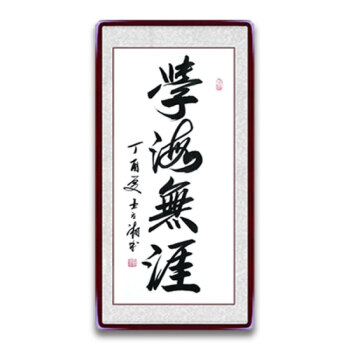 學海無涯
丁酉夏